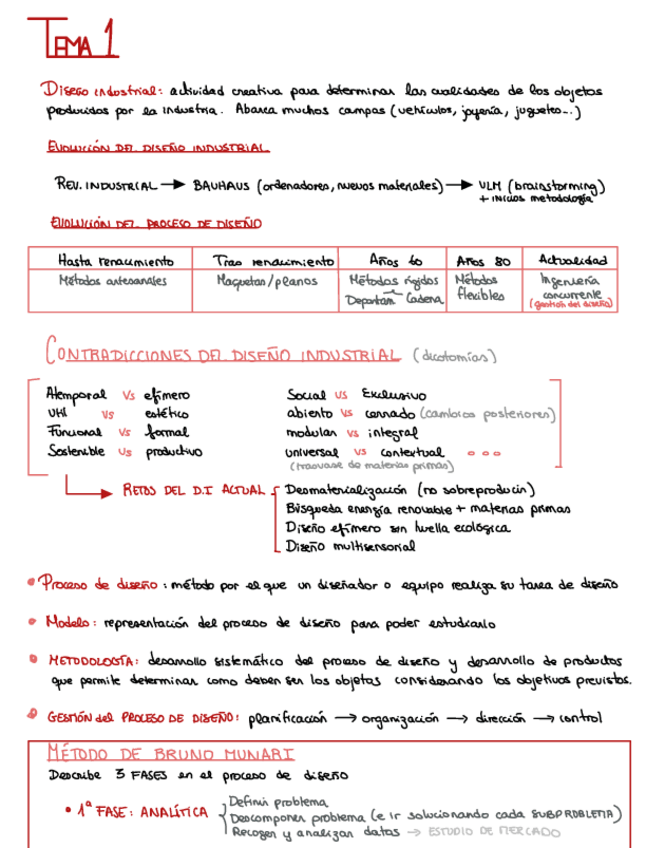 TEMA 1
Diseño industrial: actividad creativa para determinar las cualidades de los objetos
producidos por la industria. Abarca muchos campos (vehículos, joyería, juguetes...)
EVOLUCIÓN DEL DISEÑO INDUSTRIAL
REV. INDUSTRIAL → BAUHAUS (ordenadores, nuevos materiales) → ULM (brainstorming)
+ INICIOS metodología
EVOLUCIÓN DEL PROCESO DE DISEÑO
Hasta renacimiento Tras renacimiento Años 60 Años 80 Actualidad
Métodos artesanales Maquetas/planos Métodos rígidos Métodos Ingeniería
Departam Cadena flexibles concurrente
(gestión del diseño)
CONTRADICCIONES DEL DISEÑO INDUSTRIAL (dicotomías)
Atemporal vs efímero Social vs Exclusivo
Util vs estético abierto vs cerrado (cambios posteriores)
Funcional vs formal modular vs integral
Sostenible vs productivo universal vs contextual ...
(trasvase de materias primas)
→ RETOS DEL D.I ACTUAL Desmaterialización (no sobreproducir)
Búsqueda energía renovable + materias primas
Diseño efímero sin huella ecológica
Diseño multisensorial
• Proceso de diseño: método por el que un diseñador o equipo realiza su tarea de diseño
• Modelo: representación del proceso de diseño para poder estudiarlo
• METODOLOGÍA: desarrollo sistemático del proceso de diseño y desarrollo de productos
que permite determinar como deben ser los objetos considerando los objetivos previstos.
• GESTIÓN del PROCESO DE DISEÑO: planificación → organización → dirección → control
MÉTODO DE BRUNO MUNARI
Describe 3 FASES en el proceso de diseño
• 1ª FASE: ANALÍTICA Definir problema
Descomponer problema (e ir solucionando cada SUBPROBLEMA)
Recoger y analizar datos → ESTUDIO DE MERCADO